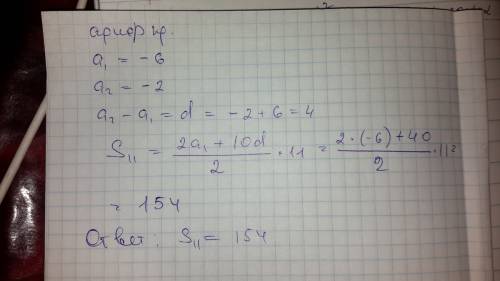 ариф пр.
a₁ = -6
a₂ = -2
a₂ - a₁ = d = -2 + 6 = 4
S₁₁ = (2a₁ + 10d)/2 · 11 = (2·(-6) + 40)/2 · 11 =
= 154
Ответ: S₁₁ = 154